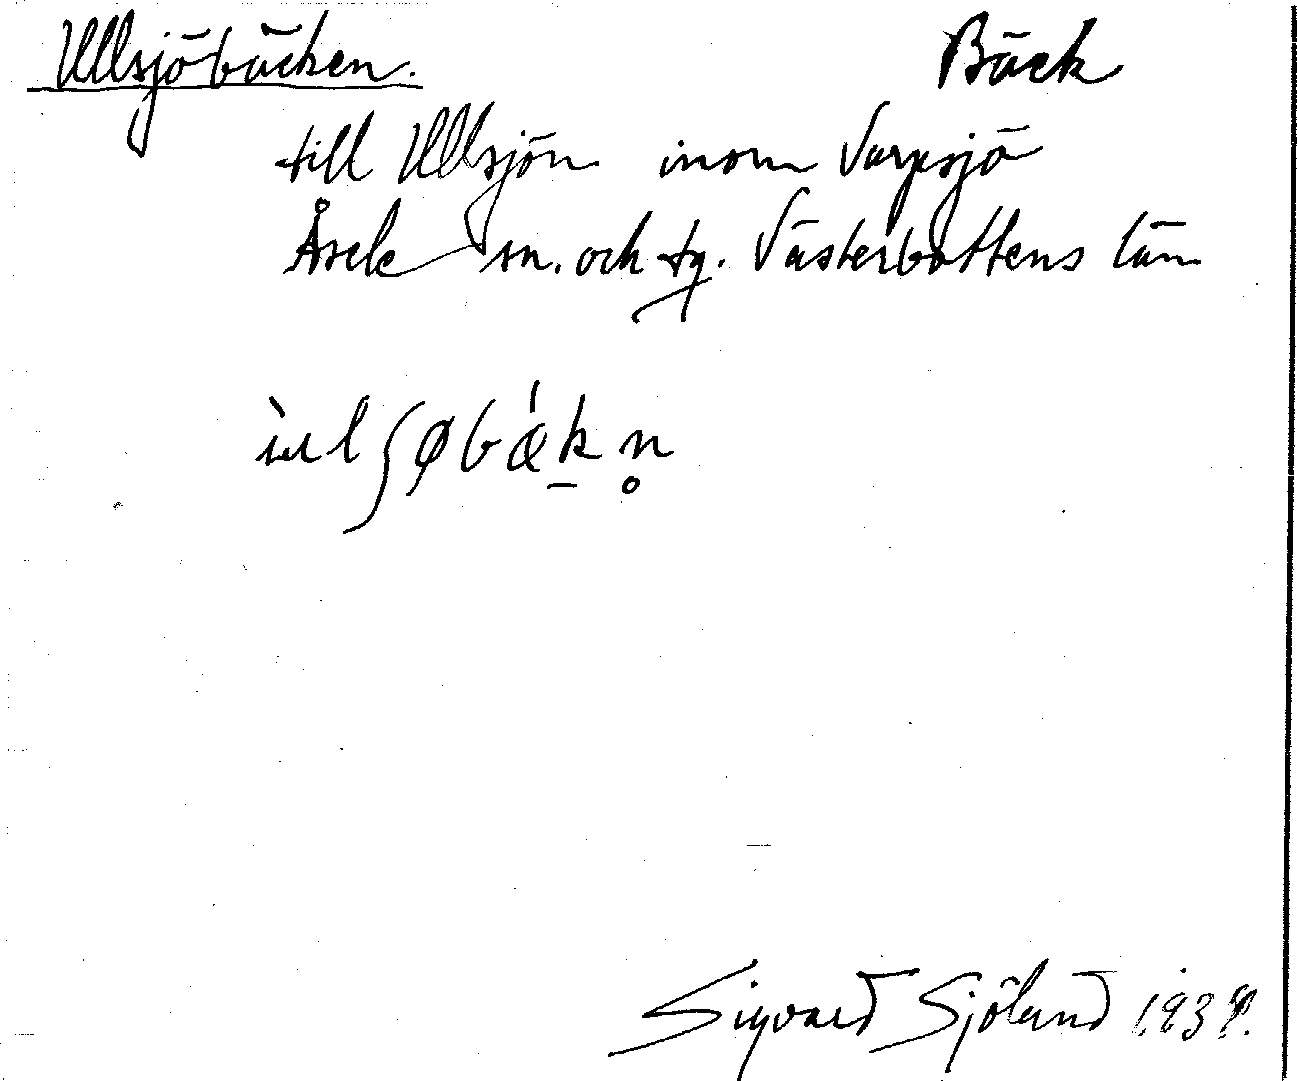 Ullsjöbäcken. Bäck
till Ullsjön inom Varpsjö
Åsele sn. och tg. Västerbottens län
Sigvard Sjölund